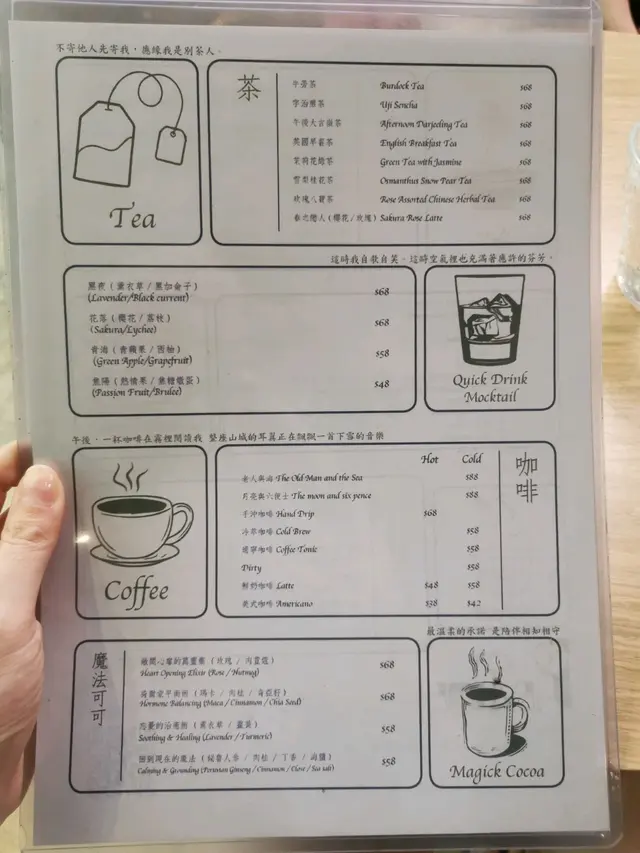 不寄他人先寄我，應緣我是別茶人。
Tea
茶
牛蒡茶 Burdock Tea $68
宇治煎茶 Uji Sencha $68
午後大吉嶺茶 Afternoon Darjeeling Tea $68
英國早餐茶 English Breakfast Tea $68
茉莉花綠茶 Green Tea with Jasmine $68
雪梨桂花茶 Osmanthus Snow Pear Tea $68
玫瑰八寶茶 Rose Assorted Chinese Herbal Tea $68
春之戀人（櫻花/玫瑰） Sakura Rose Latte $68
這時我自歌自笑，這時空氣裡也充滿著應許的芬芳。
黑夜（薰衣草/黑加侖子） $68
(Lavender/Black currant)
花落（櫻花/荔枝） $68
(Sakura/Lychee)
青海（青蘋果/西柚） $58
(Green Apple/Grapefruit)
焦陽（熱情果/焦糖燉蛋） $48
(Passion Fruit/Brulee)
Quick Drink
Mocktail
午後，一杯咖啡在霧裡閱讀我 整座山城的耳蝸正在飄飄一首下雪的音樂
Coffee
咖啡
Hot Cold
老人與海 The Old Man and the Sea $88
月亮與六便士 The moon and six pence $88
手沖咖啡 Hand Drip $68
冷萃咖啡 Cold Brew $58
通寧咖啡 Coffee Tonic $58
Dirty $58
鮮奶咖啡 Latte $48 $58
美式咖啡 Americano $38 $42
最溫柔的承諾 是陪伴相知相守
魔法可可
敞開心扉的萬靈藥（玫瑰 / 肉荳蔻） $68
Heart Opening Elixir (Rose / Nutmeg)
荷爾蒙平衡術（瑪卡 / 肉桂 / 奇亞籽） $68
Hormone Balancing (Maca / Cinnamon / Chia Seed)
忘憂的治癒術（薰衣草 / 薑黃） $58
Soothing & Healing (Lavender / Turmeric)
回到現在的魔法（秘魯人參 / 肉桂 / 丁香 / 海鹽） $58
Calming & Grounding (Peruvian Ginseng / Cinnamon / Clove / Sea salt)
Magick Cocoa